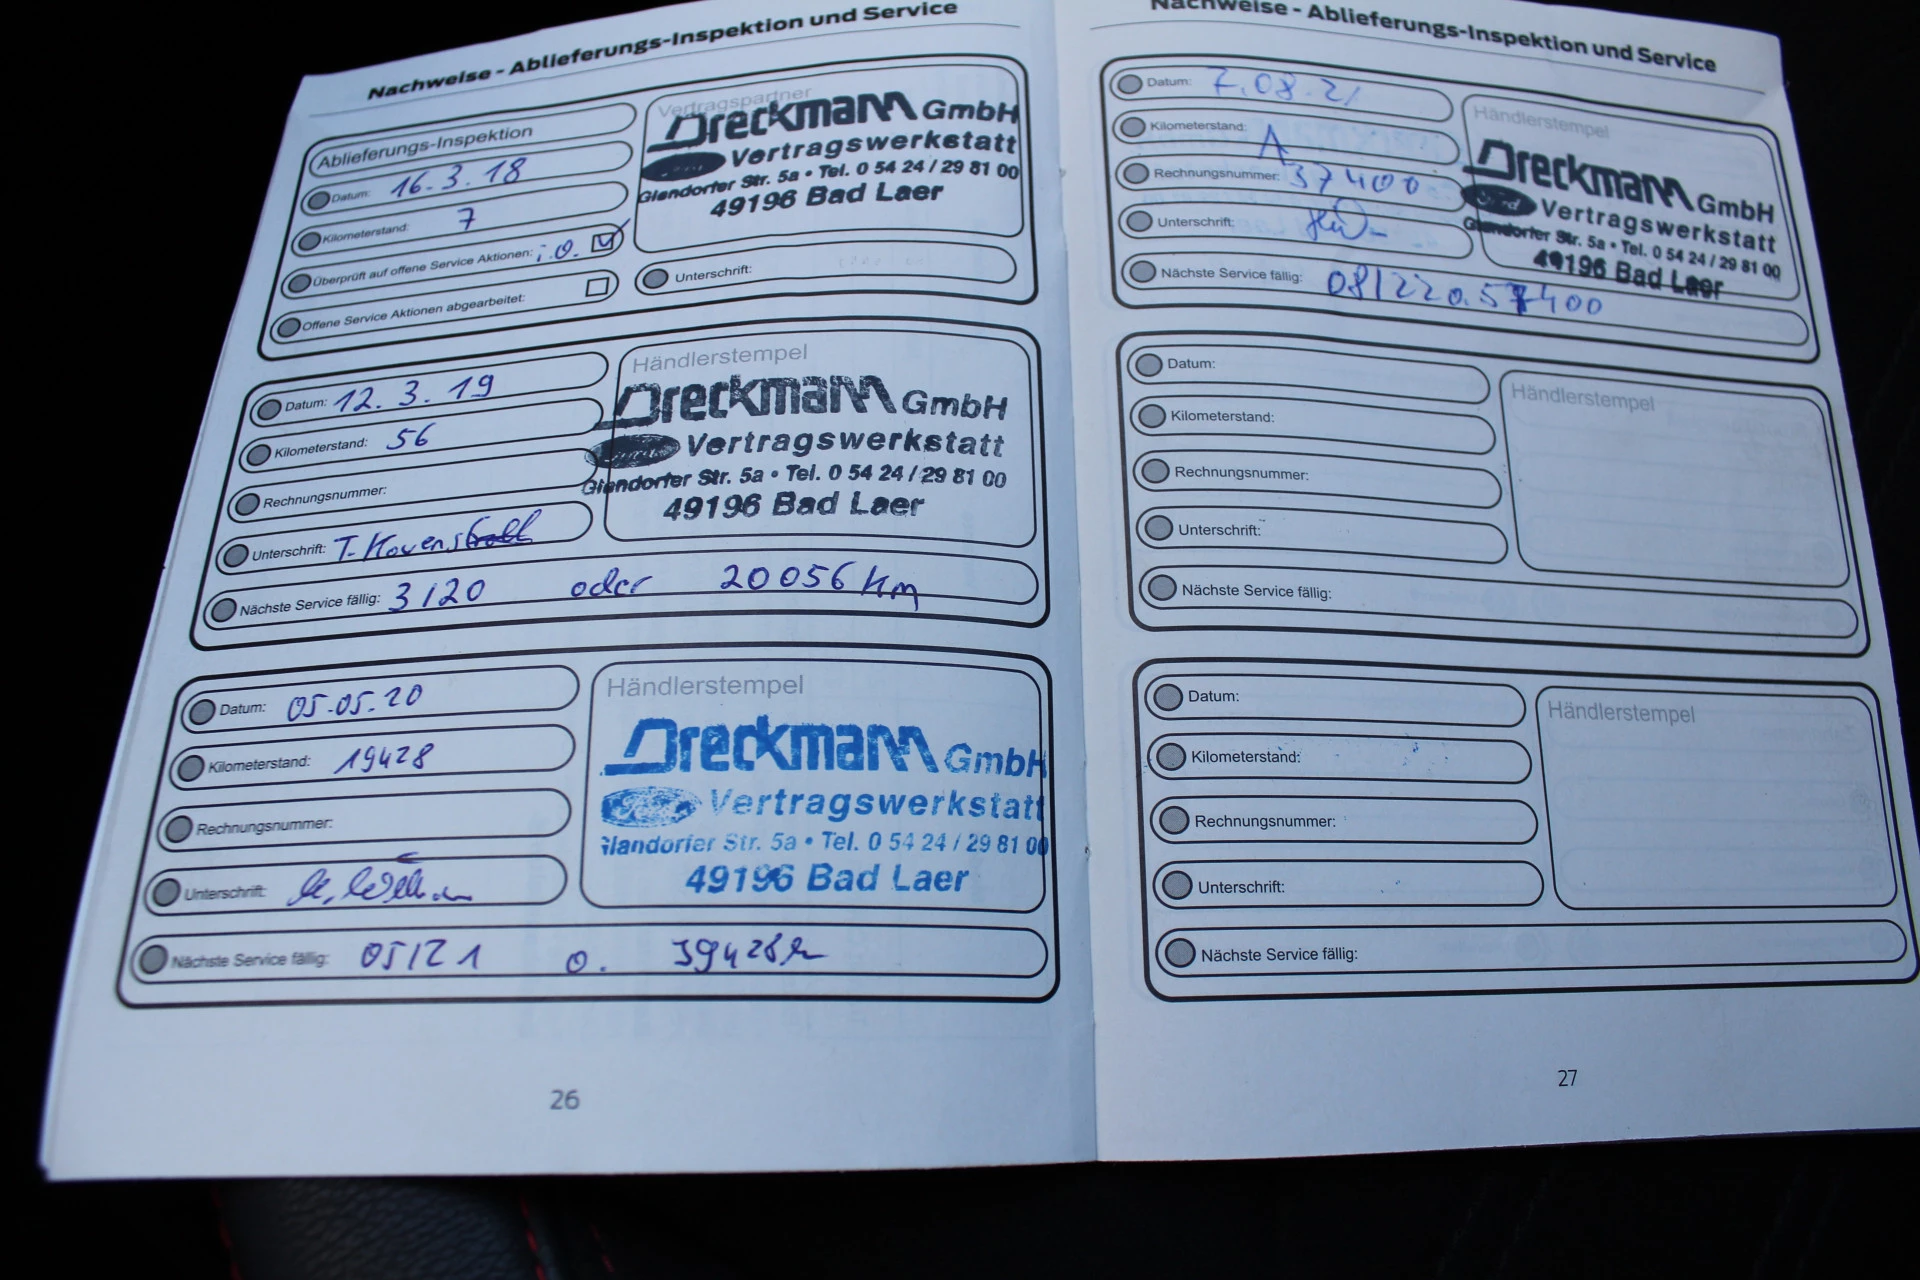 Nachweise - Ablieferungs-Inspektion und Service
Ablieferungs-Inspektion
Datum: 16.3.18
Kilometerstand: 7
Überprüft auf offene Service Aktionen: i.O.
Offene Service Aktionen abgearbeitet:
Vertragspartner
Dreckmann GmbH
Vertragswerkstatt
Glandorfer Str. 5a • Tel. 0 54 24 / 29 81 00
49196 Bad Laer
Unterschrift:
Datum: 12.3.19
Kilometerstand: 56
Rechnungsnummer:
Unterschrift:
Nächste Service fällig: 3/20 oder 20056 km
Händlerstempel
Dreckmann GmbH
Vertragswerkstatt
Glandorfer Str. 5a • Tel. 0 54 24 / 29 81 00
49196 Bad Laer
Datum: 05.05.20
Kilometerstand: 19428
Rechnungsnummer:
Unterschrift:
Nächste Service fällig: 05/21 o. 39428
Händlerstempel
Dreckmann GmbH
Vertragswerkstatt
Glandorfer Str. 5a • Tel. 0 54 24 / 29 81 00
49196 Bad Laer
26
Nachweise - Ablieferungs-Inspektion und Service
Datum: 7.08.21
Kilometerstand: A
Rechnungsnummer: 37400
Unterschrift:
Nächste Service fällig: 08/22 o. 57400
Händlerstempel
Dreckmann GmbH
Ford Vertragswerkstatt
Glandorfer Str. 5a • Tel. 0 54 24 / 29 81 00
49196 Bad Laer
Datum:
Kilometerstand:
Rechnungsnummer:
Unterschrift:
Nächste Service fällig:
Händlerstempel
Datum:
Kilometerstand:
Rechnungsnummer:
Unterschrift:
Nächste Service fällig:
Händlerstempel
27